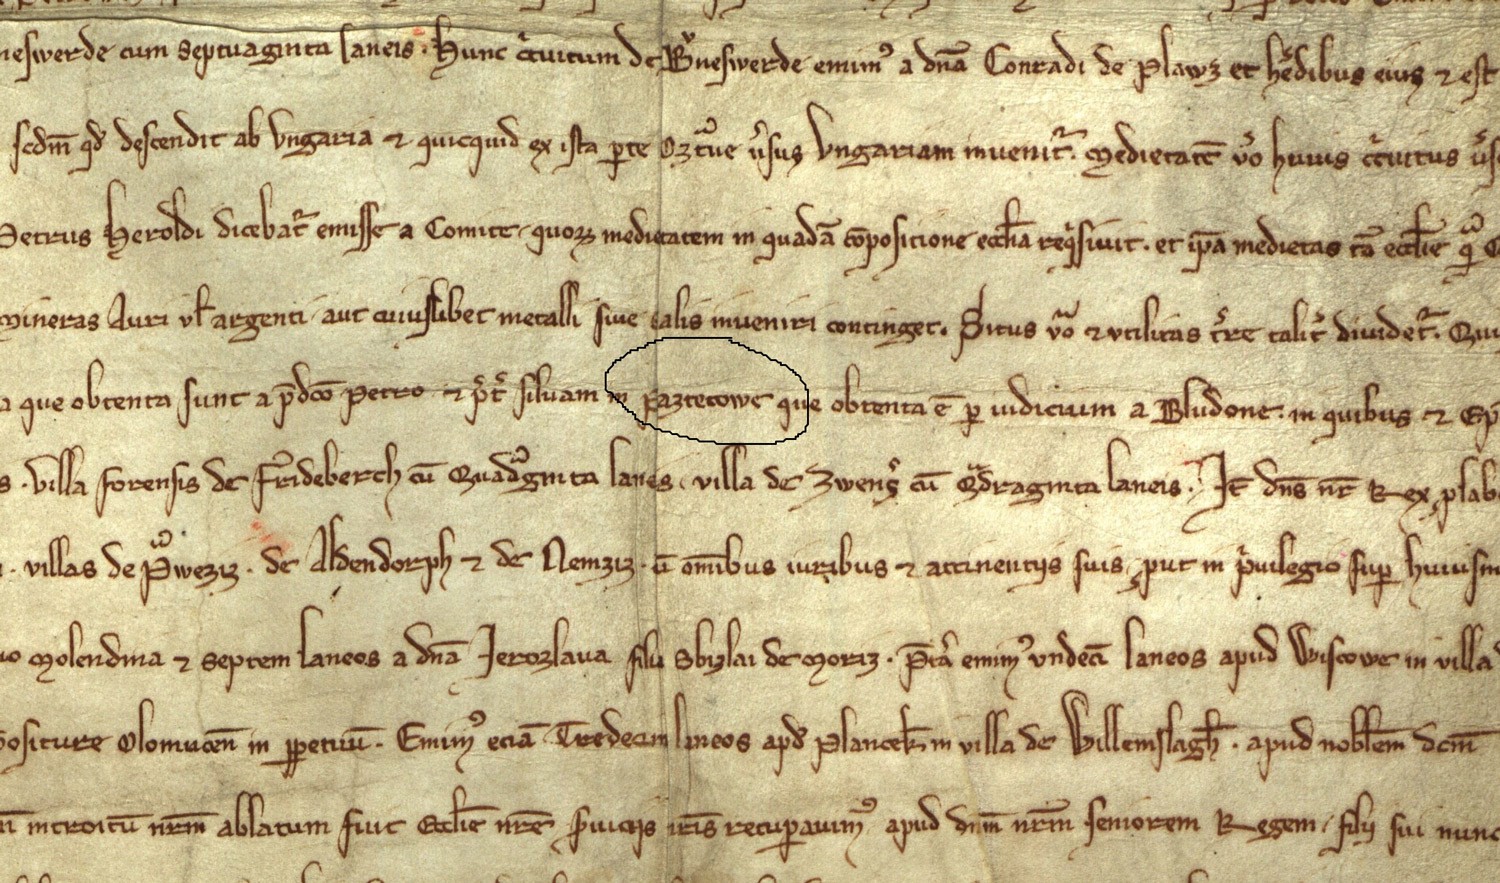 neswerde cum septuaginta laneis. Hunc c̓cuitum de B᷑neswerde emim᷒ a dn̄a Conradi de Plawz et h᷑edibus eius ⁊ est
scdm̄ qd̓ descendit ab Vngaria ⁊ quicquid ex ista ꝑte Oztᷓue v̓sus Vngariam inuenit᷑. Medietatē v̊o huius c̓cuitus
Petrus Heroldi dicebat᷑ emisse a Comite. quoꝝ medietatem in quadā cōpositione eccl̄ia req̓siuit. et ip̄a medietas eccl̄ie
mineras Auri vl̓ argenti aut cuiuslibet metalli siue salis inueniri continget. Situs v̊o ⁊ vtilitas t᷑re talit᷑ diuidet᷑.
a que obtenta sunt a p̄dc̄o Petro ⁊ siluam in Paztecowe que obtenta ē ꝑ iudicium a Bludone. in quibus ⁊ Ep̄
s. villa forensis de Frideberch cū Quadᷓginta lanes. villa de Zweng᷑ cū Qᷓdraginta laneis. It̄ dn̄s nr̄ Rex
villas de Pᷓweziz. de Aldendorph ⁊ de Nemziz. omībus iuribus ⁊ attinentijs suis, ꝓut in p̓uilegio suꝑ
uo molendina ⁊ septem laneos a dn̄a Jerozlaua filij Sbizlai de Moriz. emim᷒ vndecī laneos apud Wiscowe in villa
positure Olomucen̄ in ꝑpetuū. Emim᷒ eciā Tredecim laneos apd̓ Plancek in villa de Willemslagh̄. apud nobl̄em dcm̄
introitū nr̄m ablatum fuit Eccl̄ie nr̄e s̓uicijs nr̄is recuꝑauim᷒ apud dnm̄ nr̄m seniorem Regem, filij sui nunc